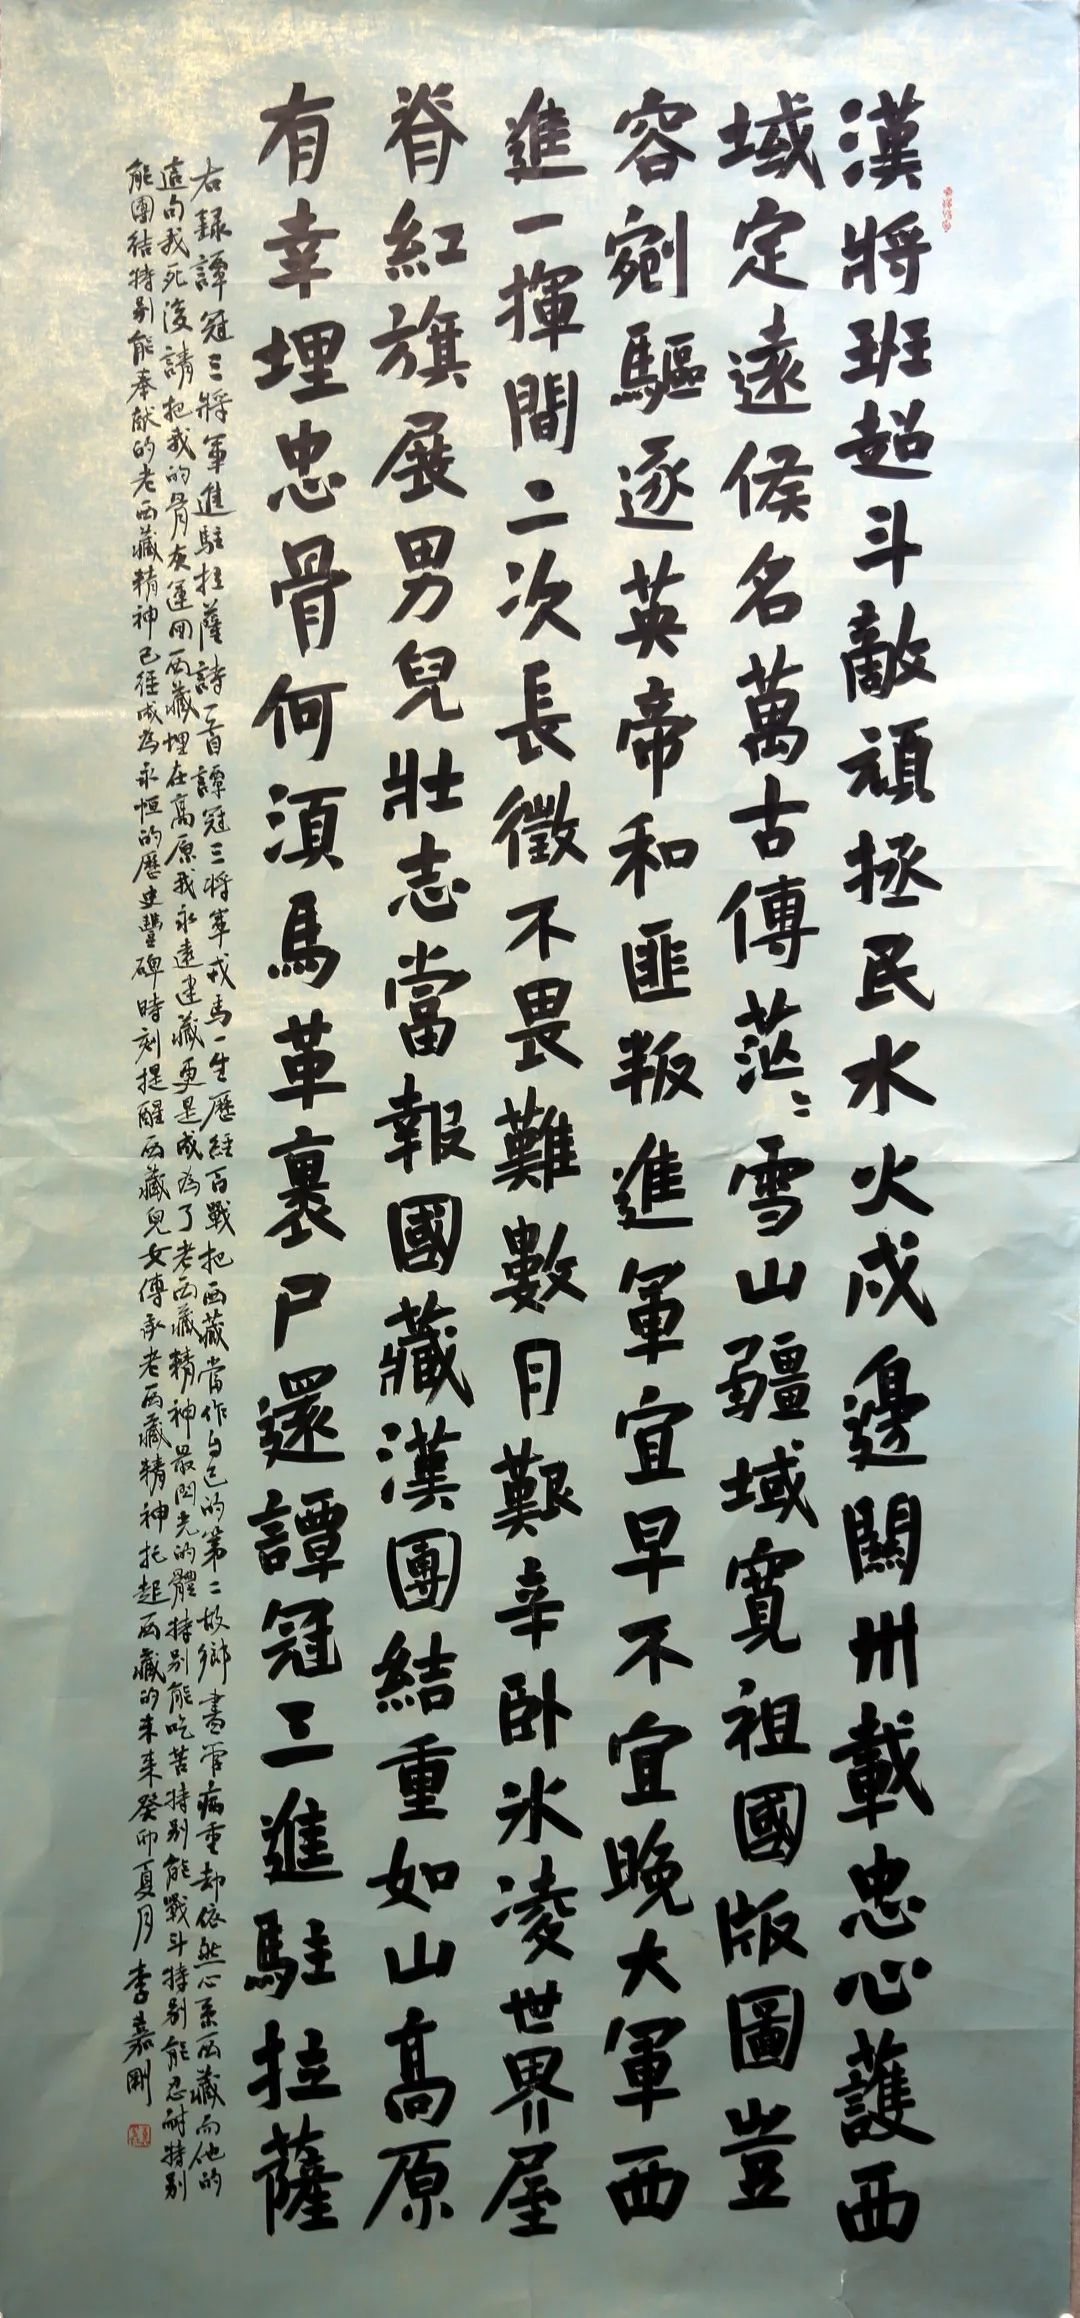 漢將班超斗敵頑拯民水火戍邊關卅載忠心護西
域定遠侯名萬古傳茫〻雪山疆域寬祖國版圖豈
容剜驅逐英帝和匪叛進軍宜早不宜晚大軍西
進一揮間二次長徵不畏難數月艱辛卧冰凌世界屋
脊紅旗展男兒壯志當報國藏漢團結重如山高原
有幸埋忠骨何須馬革裹尸還譚冠三進駐拉薩
右録譚冠三將軍進駐拉薩詩一首譚冠三將軍戎馬一生歷經百戰把西藏當作自己的第二故鄉盡管病重却依然心系西藏而他的
這句我死後請把我的骨灰運回西藏埋在高原我永遠建藏更是成為了老西藏精神最閃光的體特别能吃苦特别能戰斗特别能忍耐特别
能團结特别能奉献的老西藏精神已經成為永恒的歷史豐碑時刻提醒西藏兒女傳承老西藏精神托起西藏的未来癸卯夏月李嘉剛